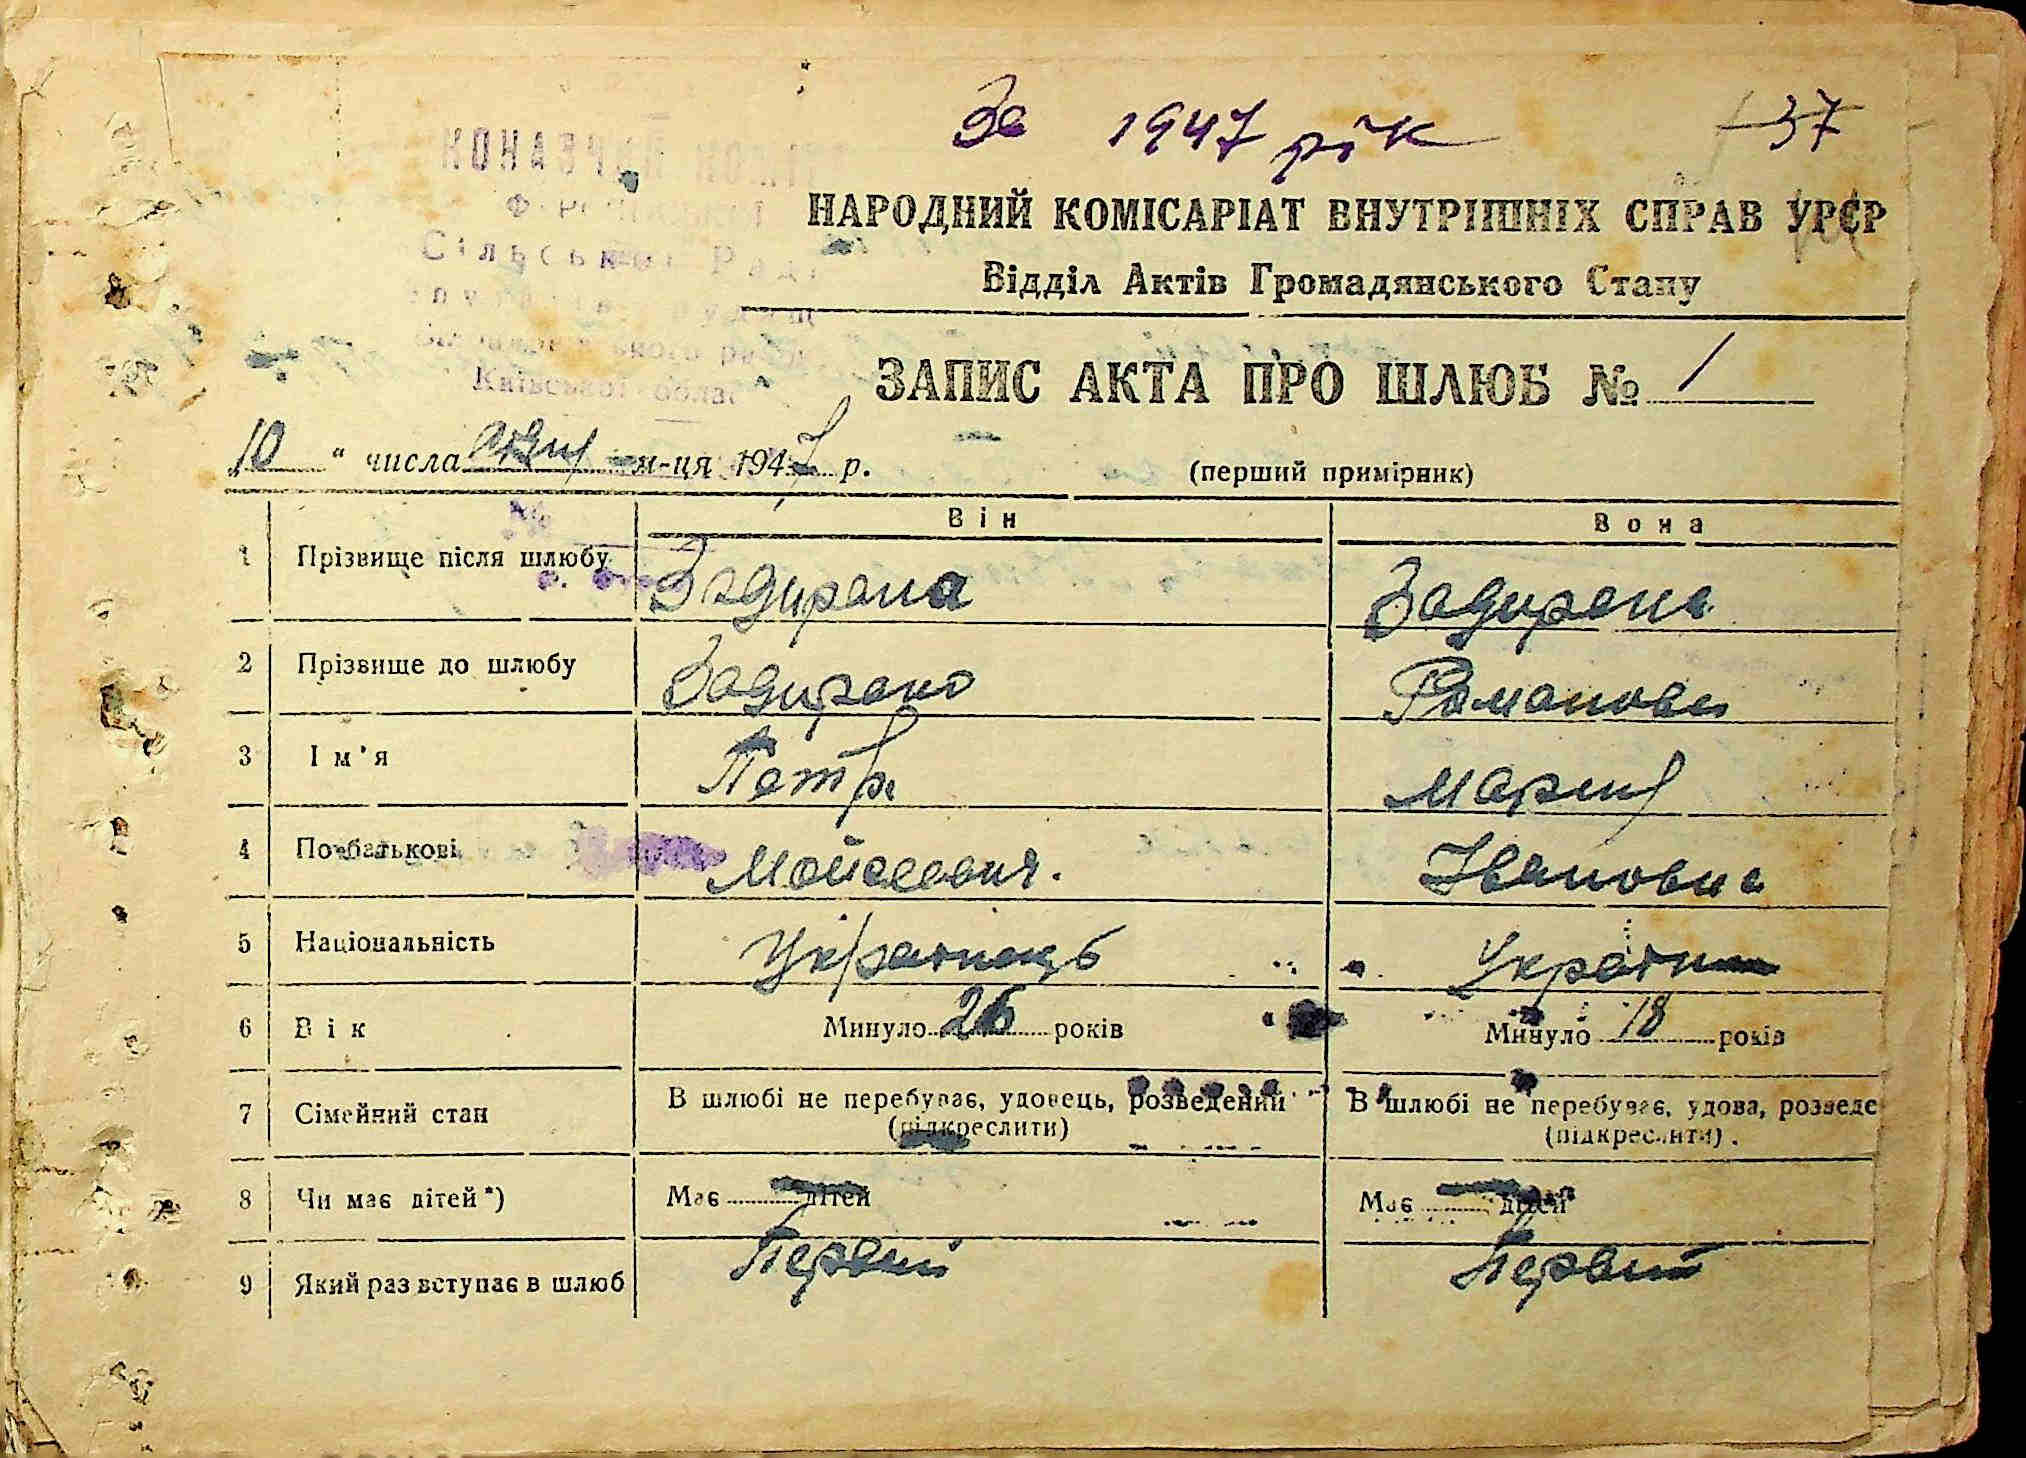 За 1947 рік 37
НАРОДНИЙ КОМІСАРІАТ ВНУТРІШНІХ СПРАВ УРСР
Відділ Актів Громадянського Стану
Сільської Ради
Київської
ЗАПИС АКТА ПРО ШЛЮБ № 1
10 " числа м-ця 1947 р.
(перший примірник)
Він Вона
1 Прізвище після шлюбу Задирака Задирака
2 Прізвище до шлюбу Задирако Романова
3 Ім'я Петр Мария
4 По батькові Мойсеевич. Ивановна
5 Національність Українець Україн
6 Вік Минуло 26 років Минуло 18 років
7 Сімейний стан В шлюбі не перебуває, удовець, розведений В шлюбі не перебуває, удова, розведе
(підкреслити) (підкреслити).
8 Чи має дітей*) Має дітей Має дітей
9 Який раз вступає в шлюб Первий Первий